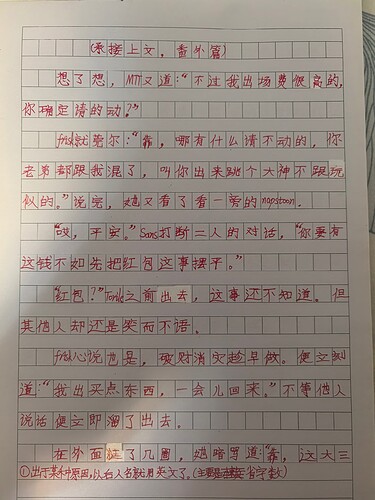 (承接上文，番外篇)
想了想，MTT又道："不过我出场费很高的，
你确定请的动？"
frisk就笑尔："靠，哪有什么请不动的，你
老弟都跟我混了，叫你出来跳个大神不跟玩
似的。"说完，她又看了看一旁的napstoon.
"哎，平安。"Sans打断二人的对话，"你要有
这钱不如先把红包这事摆平。"
"红包？"Toriel之前出去，这事还不知道。但
其他人却还是笑而不语。
frisk心说也是，破财消灾趁早做。便立刻
道："我出买点东西，一会儿回来。"不等他人
说话便立即溜了出去。
在外面逛了几圈，她暗骂道："靠，这大三
①出于某种原因，以后人名就用英文了。(主要是省字数)